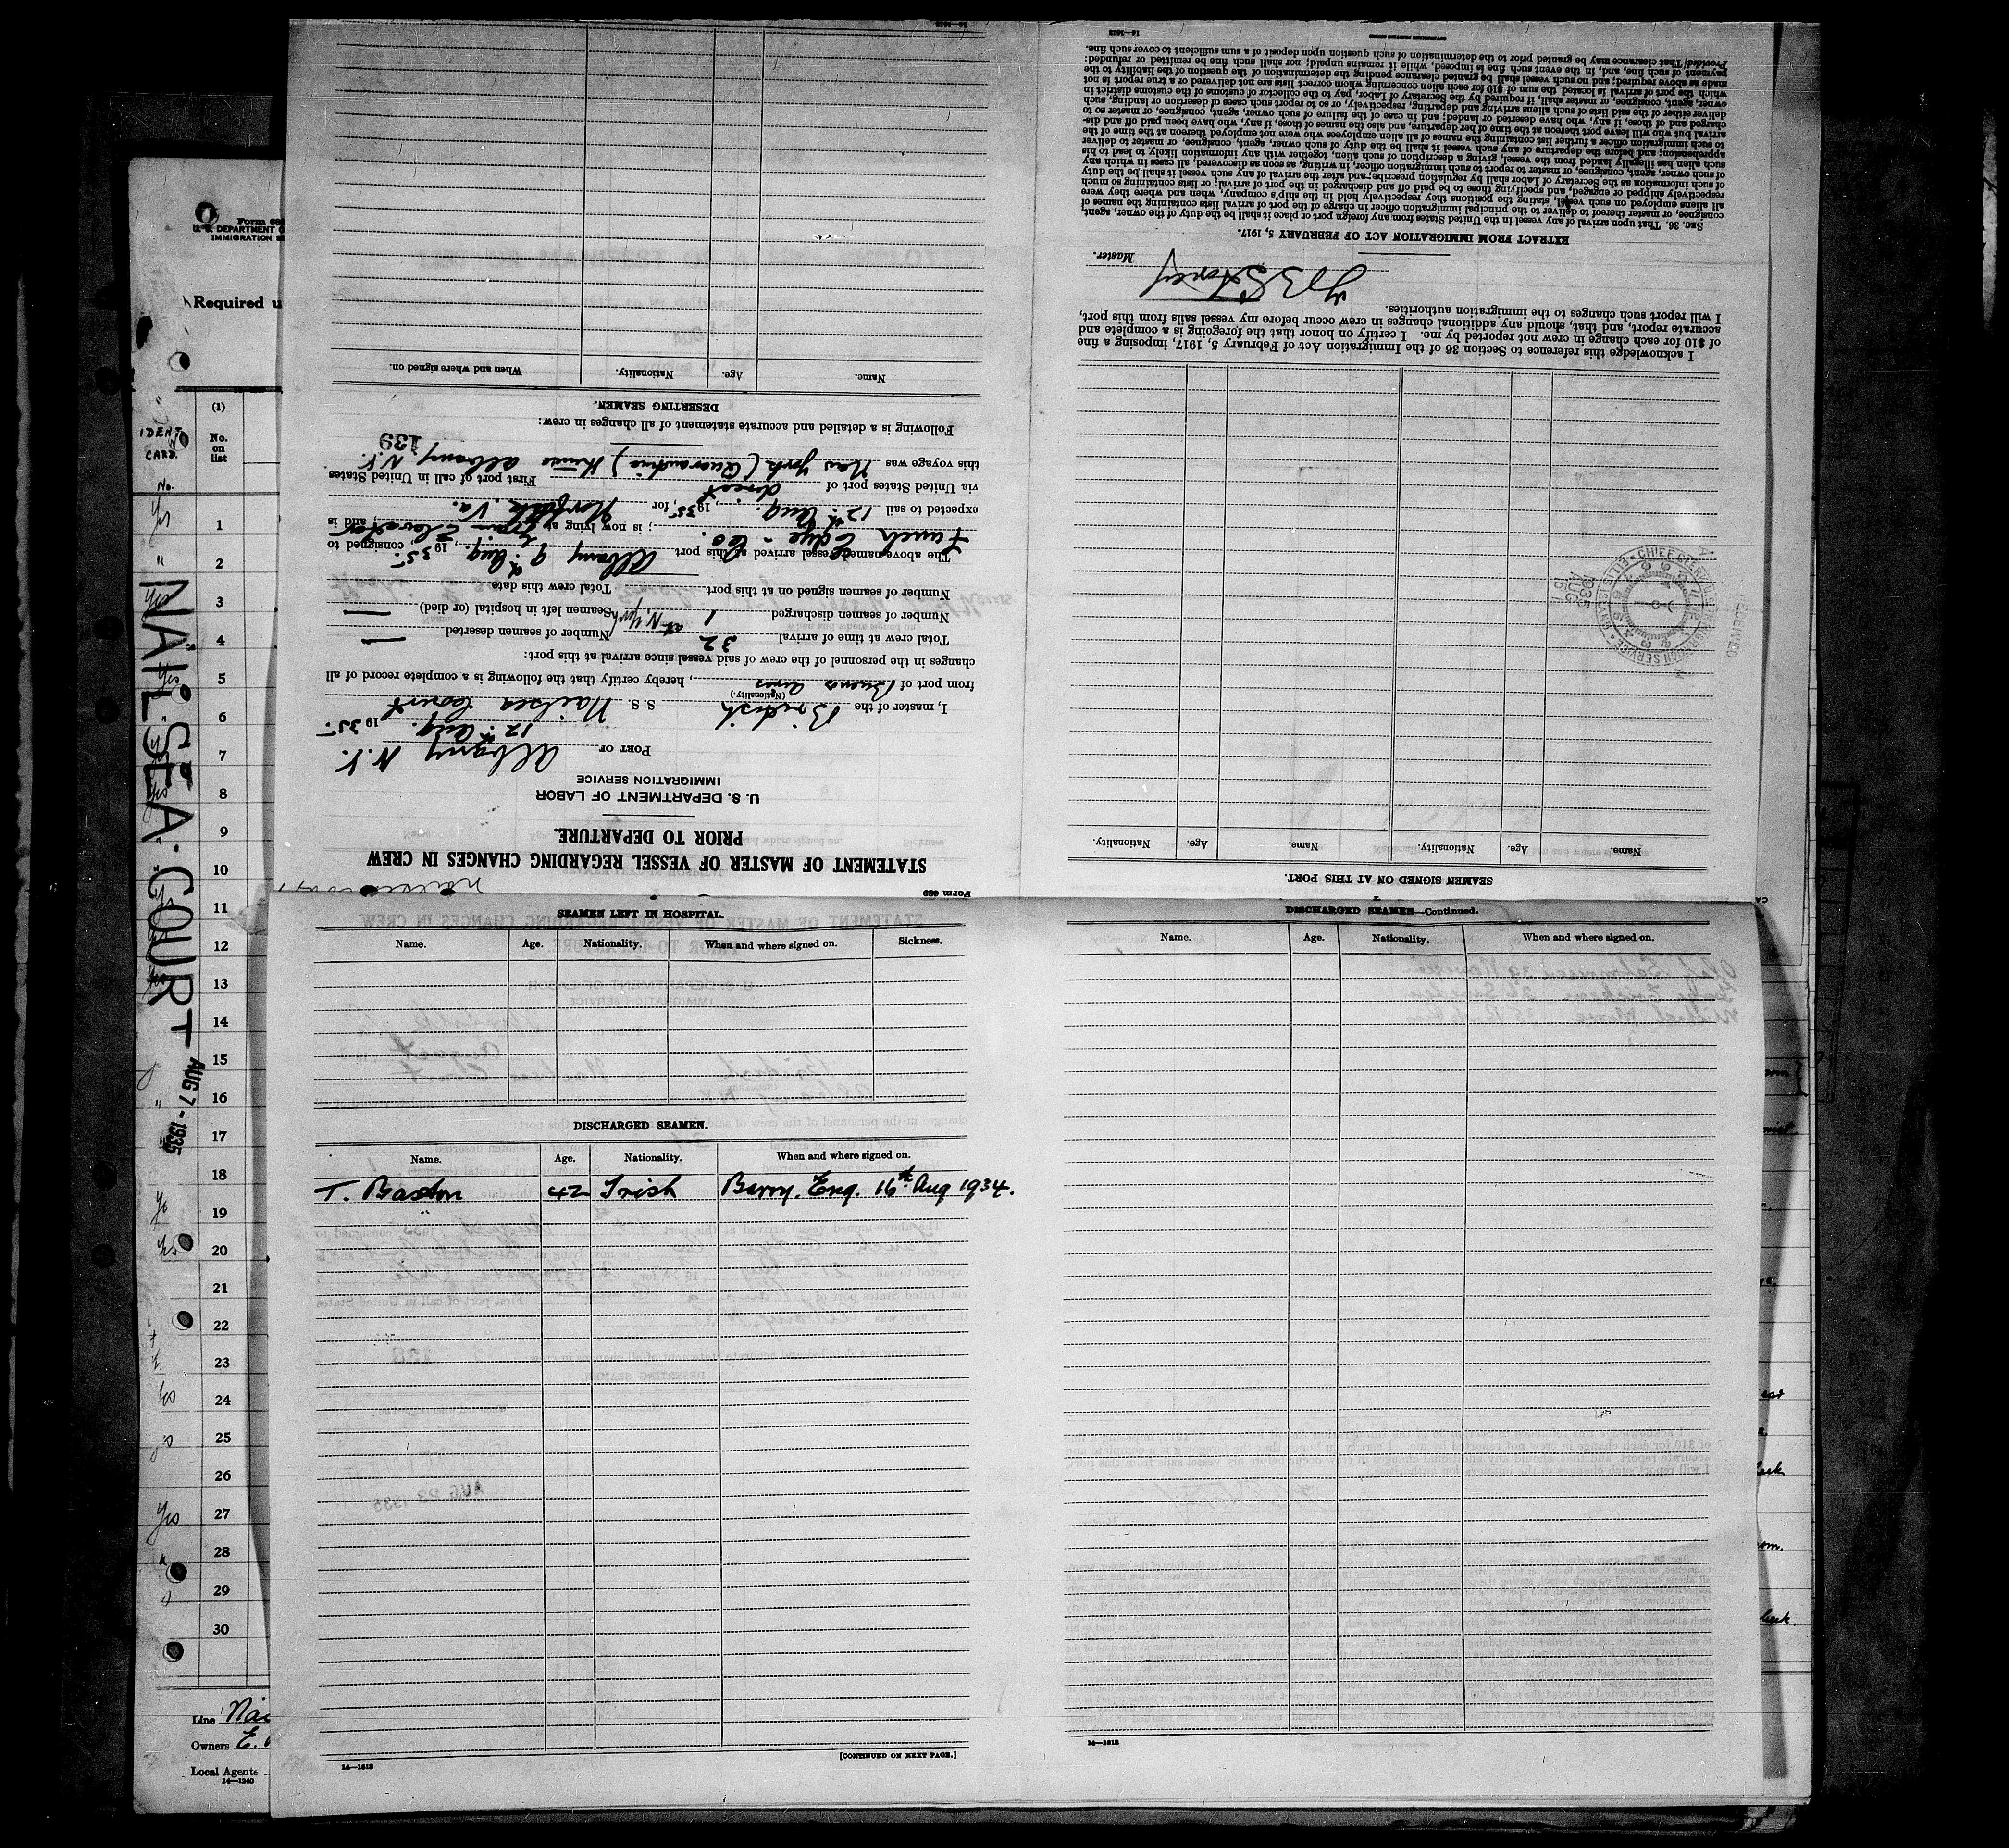 Form 689
STATEMENT OF MASTER OF VESSEL REGARDING CHANGES IN CREW
PRIOR TO DEPARTURE.
U. S. DEPARTMENT OF LABOR
IMMIGRATION SERVICE
PORT OF Albany N.Y.
12th Aug. 1935
I, master of the British S. S. Nailsea Court
(Nationality.)
from port of Buenos Aires, hereby certify that the following is a complete record of all
changes in the personnel of the crew of said vessel since arrival at this port:
Total crew at time of arrival 32 Number of seamen deserted —
Number of seamen discharged 1 at N. York Seamen left in hospital (or died) —
Number of seamen signed on at this port Total crew this date
The above-named vessel arrived at this port Albany 9th Aug., 1935, consigned to
Funch Edye & Co.; is now lying at Grain Elevator, and is
expected to sail 12th Aug., 1935, for Norfolk Va.
via United States port of direct First port of call in United States
this voyage was New York (Quarantine) thence Albany N.Y.
139
Following is a detailed and accurate statement of all changes in crew:
DESERTING SEAMEN.
Name. Age. Nationality. When and where signed on.
16—1613
SEAMEN LEFT IN HOSPITAL.
Name. Age. Nationality. When and where signed on. Sickness.
DISCHARGED SEAMEN.
Name. Age. Nationality. When and where signed on.
T. Baston 42 Irish Barry. Eng. 16th Aug 1934.
14—1613
[CONTINUED ON NEXT PAGE.]
DISCHARGED SEAMEN—Continued.
Name. Age. Nationality. When and where signed on.
14—1613
SEAMEN SIGNED ON AT THIS PORT.
Name. Age. Nationality. Name. Age. Nationality.
I acknowledge this reference to Section 36 of the Immigration Act of February 5, 1917, imposing a fine
of $10 for each change in crew not reported by me. I certify on honor that the foregoing is a complete and
accurate report, and that, should any additional changes in crew occur before my vessel sails from this port,
I will report such changes to the immigration authorities.
Master.
EXTRACT FROM IMMIGRATION ACT OF FEBRUARY 5, 1917.
SEC. 36. That upon arrival of any vessel in the United States from any foreign port or place it shall be the duty of the owner, agent,
consignee, or master thereof to deliver to the principal immigration officer in charge of the port of arrival lists containing the names of
all aliens employed on such vessel, stating the positions they respectively hold in the ship's company, when and where they were
respectively shipped or engaged, and specifying those to be paid off and discharged in the port of arrival; or lists containing so much
of such information as the Secretary of Labor shall by regulation prescribe; and after the arrival of any such vessel it shall be the duty
of such owner, agent, consignee, or master to report to such immigration officer, in writing, as soon as discovered, all cases in which any
such alien has illegally landed from the vessel, giving a description of such alien, together with any information likely to lead to his
apprehension; and before the departure of any such vessel it shall be the duty of such owner, agent, consignee, or master to deliver
to such immigration officer a further list containing the names of all alien employees who were not employed thereon at the time of the
arrival but who will leave port thereon at the time of her departure, and also the names of those, if any, who have been paid off and dis-
charged and of those, if any, who have deserted or landed; and in case of the failure of such owner, agent, consignee, or master so to
deliver either of the said lists of such aliens arriving and departing, respectively, or so to report such cases of desertion or landing, such
owner, agent, consignee, or master shall, if required by the Secretary of Labor, pay to the collector of customs of the customs district in
which the port of arrival is located the sum of $10 for each alien concerning whom correct lists are not delivered or a true report is not
made as above required; and no such vessel shall be granted clearance pending the determination of the question of the liability to the
payment of such fine, and, in the event such fine is imposed, while it remains unpaid; nor shall such fine be remitted or refunded:
Provided, That clearance may be granted prior to the determination of such question upon deposit of a sum sufficient to cover such fine.
16—1613
1935
AUG
15
Form 68
U. S. DEPARTMENT O
IMMIGRATION S
Required u
(1)
No.
on
list
IDENT.
CARD.
No.
1
2
3
4
5
6
7
8
9
10
11
12
13
14
15
16
17
18
19
20
21
22
23
24
25
26
27
28
29
30
NAILSEA COURT
AUG 7 - 1935
Line Nai
Owners E.
Local Agents
14—1240